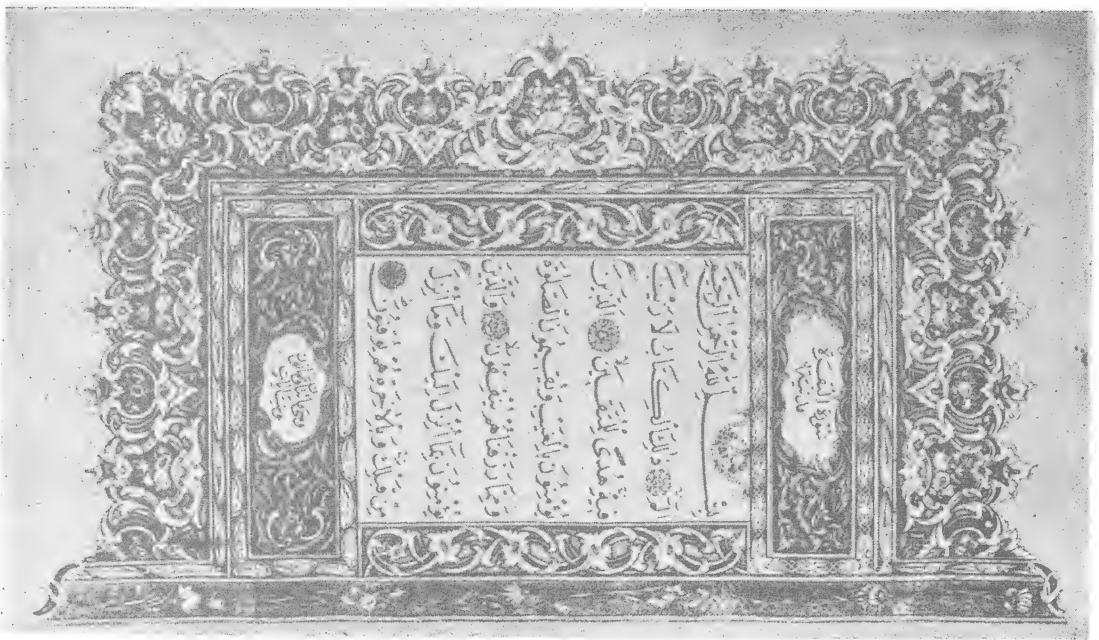 سورة البقرة
مدنية
بِسْمِ اللهِ الرَّحْمٰنِ الرَّحِيمِ
الم ذٰلِكَ الْكِتَابُ لَا رَيْبَ
فِيهِ هُدًى لِلْمُتَّقِينَ الَّذِينَ
يُؤْمِنُونَ بِالْغَيْبِ وَيُقِيمُونَ الصَّلٰوةَ
وَمِمَّا رَزَقْنَاهُمْ يُنْفِقُونَ وَالَّذِينَ
يُؤْمِنُونَ بِمَا اُنْزِلَ اِلَيْكَ وَمَا اُنْزِلَ
مِنْ قَبْلِكَ وَبِالْاٰخِرَةِ هُمْ يُوقِنُونَ